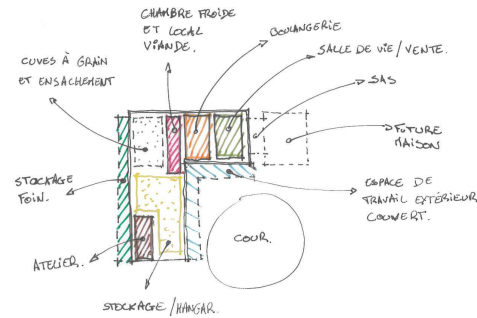 CHAMBRE FROIDE
ET LOCAL
VIANDE.
BOULANGERIE
SALLE DE VIE/VENTE.
SAS
CUVES À GRAIN
ET ENSACHEMENT
FUTURE
MAISON
STOCKAGE
FOIN.
ESPACE DE
TRAVAIL EXTÉRIEUR
COUVERT.
COUR.
ATELIER.
STOCKAGE/HANGAR.